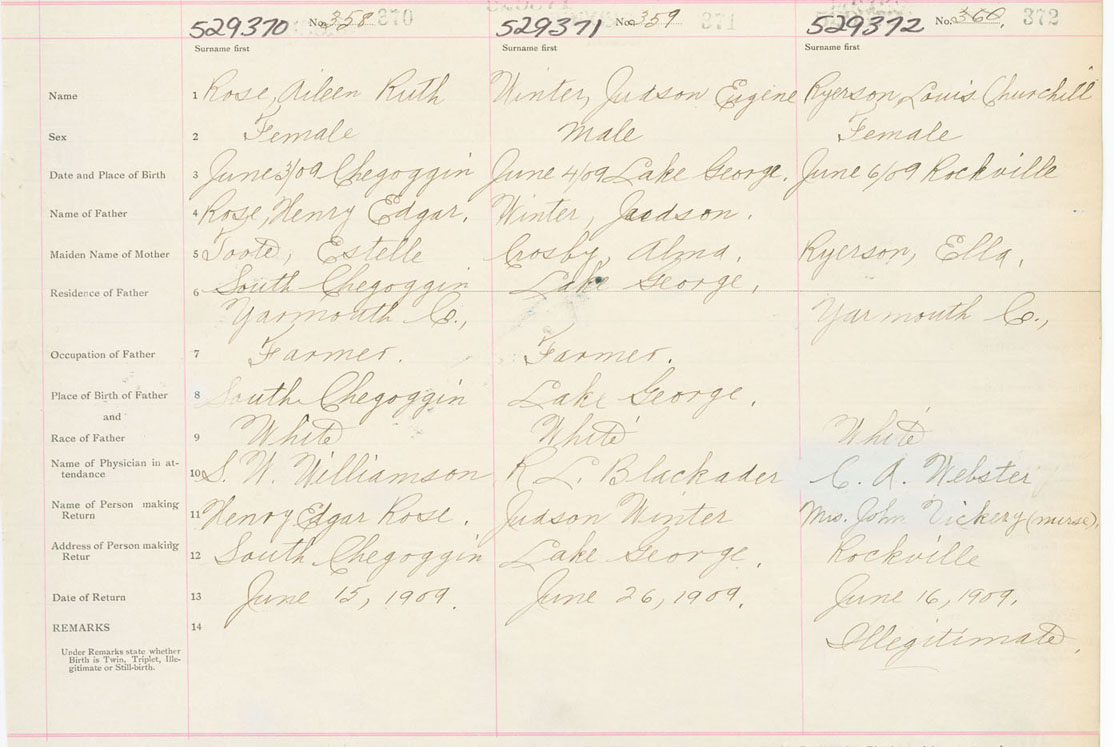 529370 No. 358 370 529371 No. 359 371 529372 No. 360 372
Surname first Surname first Surname first
Name 1 Rose, Aileen Ruth Winter, Judson Eugene Ryerson, Louis Churchill
Sex 2 Female Male Female
Date and Place of Birth 3 June 3/09 Chegoggin June 4/09 Lake George. June 6/09 Rockville
Name of Father 4 Rose, Henry Edgar. Winter, Judson.
Maiden Name of Mother 5 Estelle Crosby, Alma. Ryerson, Ella.
Residence of Father 6 South Chegoggin Lake George,
Yarmouth C., Yarmouth C.,
Occupation of Father 7 Farmer. Farmer.
Place of Birth of Father 8 South Chegoggin Lake George.
and
Race of Father 9 White White White
Name of Physician in at-
tendance 10 S. W. Williamson R L. Blackader C. A. Webster
Name of Person making
Return 11 Henry Edgar Rose. Judson Winter Mrs. John Vickery (nurse).
Address of Person making
Retur 12 South Chegoggin Lake George. Rockville
Date of Return 13 June 15, 1909. June 26, 1909. June 16, 1909.
REMARKS 14 Illegitimate.
Under Remarks state whether
Birth is Twin, Triplet, Ille-
gitimate or Still-birth.